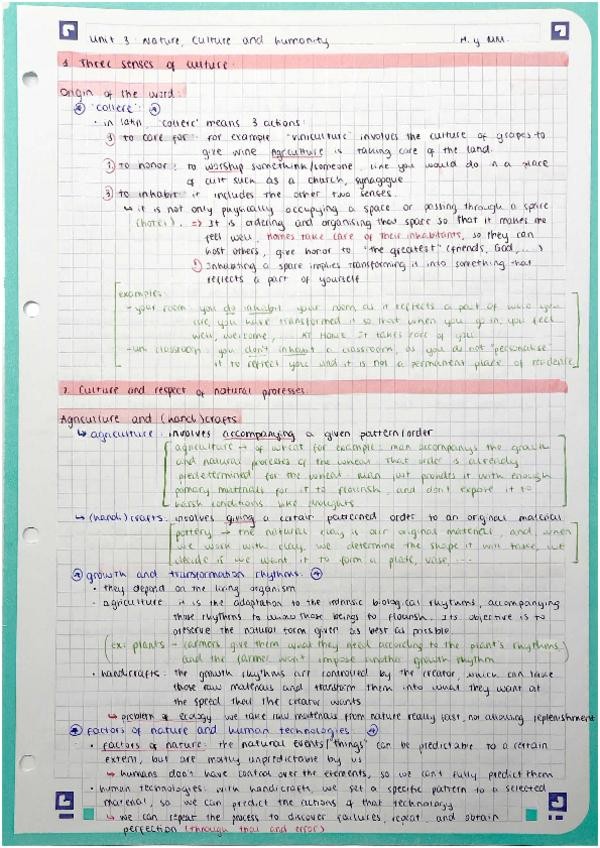 Unit 3: Nature, culture and humanity H. y MM.
1 Three senses of culture.
Origin of the word:
"colere":
• in latin, "colere" means 3 actions:
① to care for: for example "viniculture" involves the culture of grapes to
give wine. Agriculture is taking care of the land.
② to honor: to worship something/someone, like you would do in a place
of cult such as a church, synagogue
③ to inhabit: it includes the other two senses.
↳ it is not only physically occupying a space or passing through a space
(hotel). ⇒ It is ordering and organising that space so that it makes me
feel well. Homes take care of their inhabitants, so they can
host others, give honor to "the greatest" (friends, God, ...)
Inhabiting a space implies transforming it into something that
reflects a part of yourself.
examples:
- your room: you do inhabit your room as it reflects a part of who you
are, you have transformed it so that when you go in, you feel
well, welcome, AT HOME. It takes care of you
classroom: you don't inhabit a classroom, as you do not "personalise"
it to reflect you and it is not a permanent place of residence
2. Culture and respect of natural processes.
Agriculture and (hand)crafts
↳ agriculture: involves accompanying a given pattern/order
agriculture → of wheat for example: man accompanys the growth
and natural process of the wheat. That order is already
predetermined for the wheat. Man just provides it with enough
primary materials for it to flourish, and don't expose it to
harsh conditions like droughts
↳ (hand)crafts: involves giving a certain patterned order to an original material
pottery → the natural clay is our original material, and, when
we work with clay, we determine the shape it will take, we
decide is we want it to form a plate, vase, ...
growth and transformation rhythms:
• they depend on the living organism
• agriculture: it is the adaptation to the intrinsic biological rhythms, accompanying
those rhythms to allow those beings to flourish. Its objective is to
preserve the natural form given as best as possible.
(ex: plants - farmers give them what they need according to the plant's rhythms,
and the farmer won't impose another growth rhythm)
• handicrafts: the growth rhythms are controlled by the creator, which can take
those raw materials and transform them into what they want at
the spread that the creator wants
↳ problem of ecology: we take raw materials from nature really fast, no allowing replenishment
factors of nature and human technologies:
• factors of nature: the natural events/"things" can be predictable to a certain
extent, but are mostly unpredictable by us
↳ humans don't have control over the elements, so we can't fully predict them
• human technologies: with handicrafts, we set a specific pattern to a selected
material, so we can predict the actions of that technology
↳ we can repeat the process to discover failures, repeat, and obtain
perfection (through trial and error)